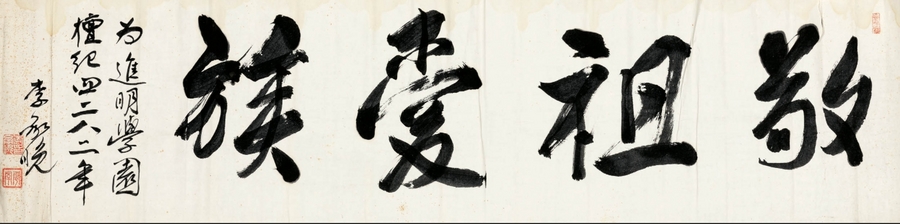 敬祖愛族
為進明學園
檀紀四二八二年
李承晩